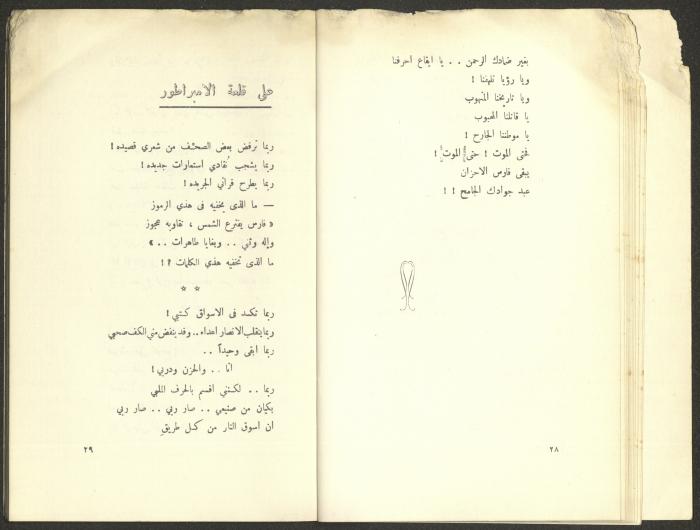 بغير ضمادك الرحمن . . يا ايقاع احرفنا
ويا رؤيا تلهبنا !
ويا تاريخنا المنهوب
يا قاتلنا المحبوب
يا موطننا الجارح !
فحتى الموت ! حتى الموت !
يبقى فارس الاحزان
عبد جوادك الجامح ! !
٢٨
على قلعة الامبراطور
ربما ترفض بعض الصحف من شعري قصيده !
ربما يشجب نقادي استعارات جديده !
ربما يطرح قرائي الجريده !
— ما الذى يخفيه فى هذي الرموز
« فارس يفترع الشمس ، تقاويه عجوز
وإله وثني . . وبغايا طاهرات . . »
ما الذى تخفيه هذي الكلمات ؟ !
* *
ربما تكسد فى الاسواق كتبي !
ربما ينقلب الانصار اعداء . . وقد ينفض مني الكف صحبي
ربما ابقى وحيداً . .
انا . . والحزن ودربي !
ربما . . لكنني اقسم بالحرف النبي
بكيان من صنيعي . . صار ربي . . صار ربي
ان اسوق النار من كل طريق
٢٩